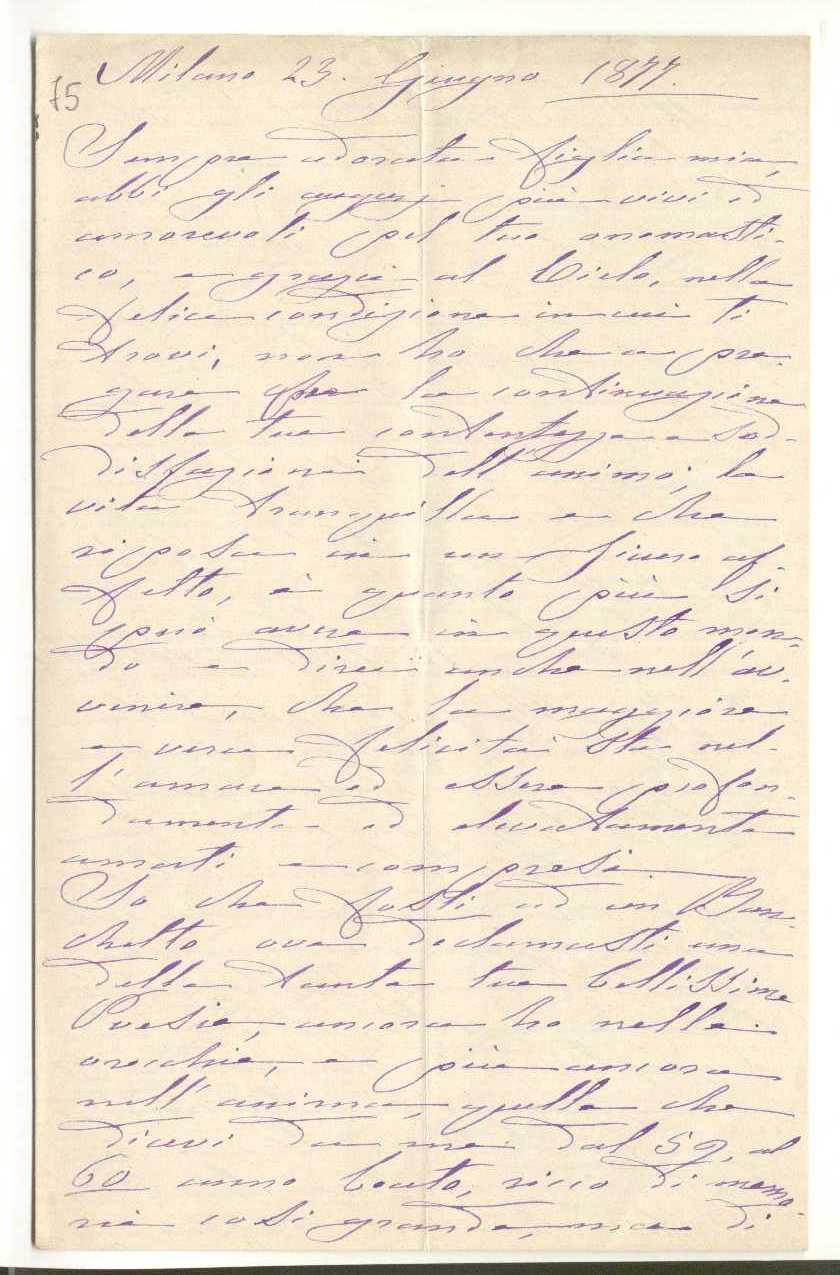 75
Milano 23. Giugno 1877.
Sempre adorata figlia mia,
abbi gli augurj più vivi ed
amorevoli pel tuo onomasti-
co, e grazie al Cielo, nella
felice condizione in cui ti
trovi, non ho che a pre-
gare per la continuazione
della tua contentezza e sod-
disfazione dell'animo; la
vita tranquilla e che
riposa in un sicuro af-
fetto, è quanto più si
può avere in questo mon-
do e direi anche nell'av-
venire, che la maggiore
e vera felicità sta nel-
l'amare ed essere profon-
damente ed elevatamente
amati e compresi.
So che fosti ad un Ban-
chetto ove declamasti una
delle tante tue bellissime
Poesie, ancora ho nelle
orecchie, e più ancora
nell'anima, quelle che
dicevi da me dal 59, al
60 anno beato, ricco di memo-
rie così grandi, ma di